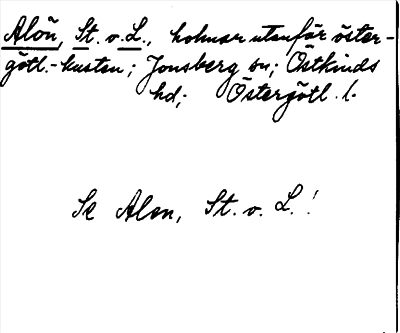 Alön, St. o. L., holmar utanför öster-
götl.-kusten; Jonsberg sn; Östkinds
hd; Östergötl. l.
Se Alon, St. o. L.!